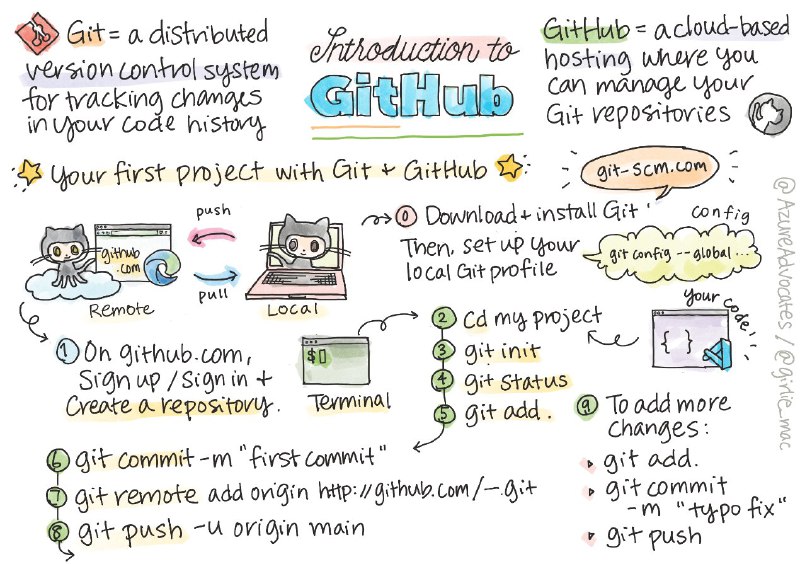 Git = a distributed
version control system
for tracking changes
in your code history
Introduction to
GitHub
GitHub = a cloud-based
hosting where you
can manage your
Git repositories
Your first project with Git + GitHub
git-scm.com
push
github
.com
pull
Remote
Local
0 Download + install Git
Then, set up your
local Git profile
config
git config --global ...
1 On github.com,
Sign up / Sign in +
Create a repository.
$
Terminal
2 cd my project
3 git init
4 git status
5 git add .
your code!
{ }
6 git commit -m "first commit"
7 git remote add origin http://github.com/~.git
8 git push -u origin main
9 To add more
changes:
git add.
git commit
-m "typo fix"
git push
@AzureAdvocates / @girlie_mac